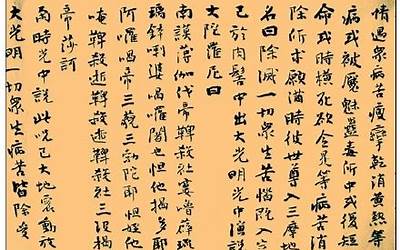 情遇眾病苦瘦攣乾消黃熱等
病或被魘魅蠱毒所中或復短
命或時橫死欲令是等病苦消
除所求願滿時彼世尊入三摩地
名曰除滅一切眾生苦惱既入定
已於肉髻中出大光明光中演說
大陀羅尼曰
南謨薄伽伐帝鞞殺社窶嚕薜琉
璃鉢喇婆喝囉闍也怛他揭多耶
阿囉喝帝三藐三勃陀耶怛姪他
唵鞞殺逝鞞殺逝鞞殺社三沒揭
帝莎訶
爾時光中說此呪已大地震動放
大光明一切眾生病苦皆除受